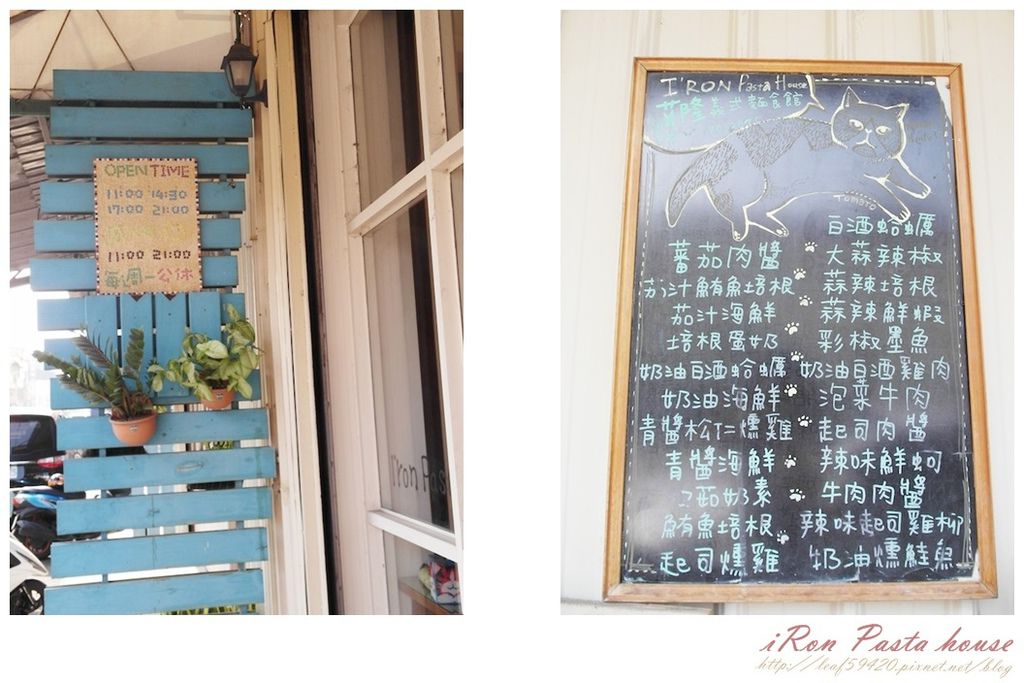 OPEN TIME
11:00 14:30
17:00 21:00
11:00 21:00
每週一公休
I'ron Pas
I'RON Pasta House
艾隆義式麵食館
Tomato
蕃茄肉醬
茄汁鮪魚培根
茄汁海鮮
培根蛋奶
奶油白酒蛤蠣
奶油海鮮
青醬松仁燻雞
青醬海鮮
奶素
鮪魚培根
起司燻雞
白酒蛤蠣
大蒜辣椒
蒜辣培根
蒜辣鮮蝦
彩椒墨魚
奶油白酒雞肉
泡菜牛肉
起司肉醬
辣味鮮蚵
牛肉肉醬
辣味起司雞柳
奶油燻鮭魚
iRon Pasta house
http://leaf59420.pixnet.net/blog